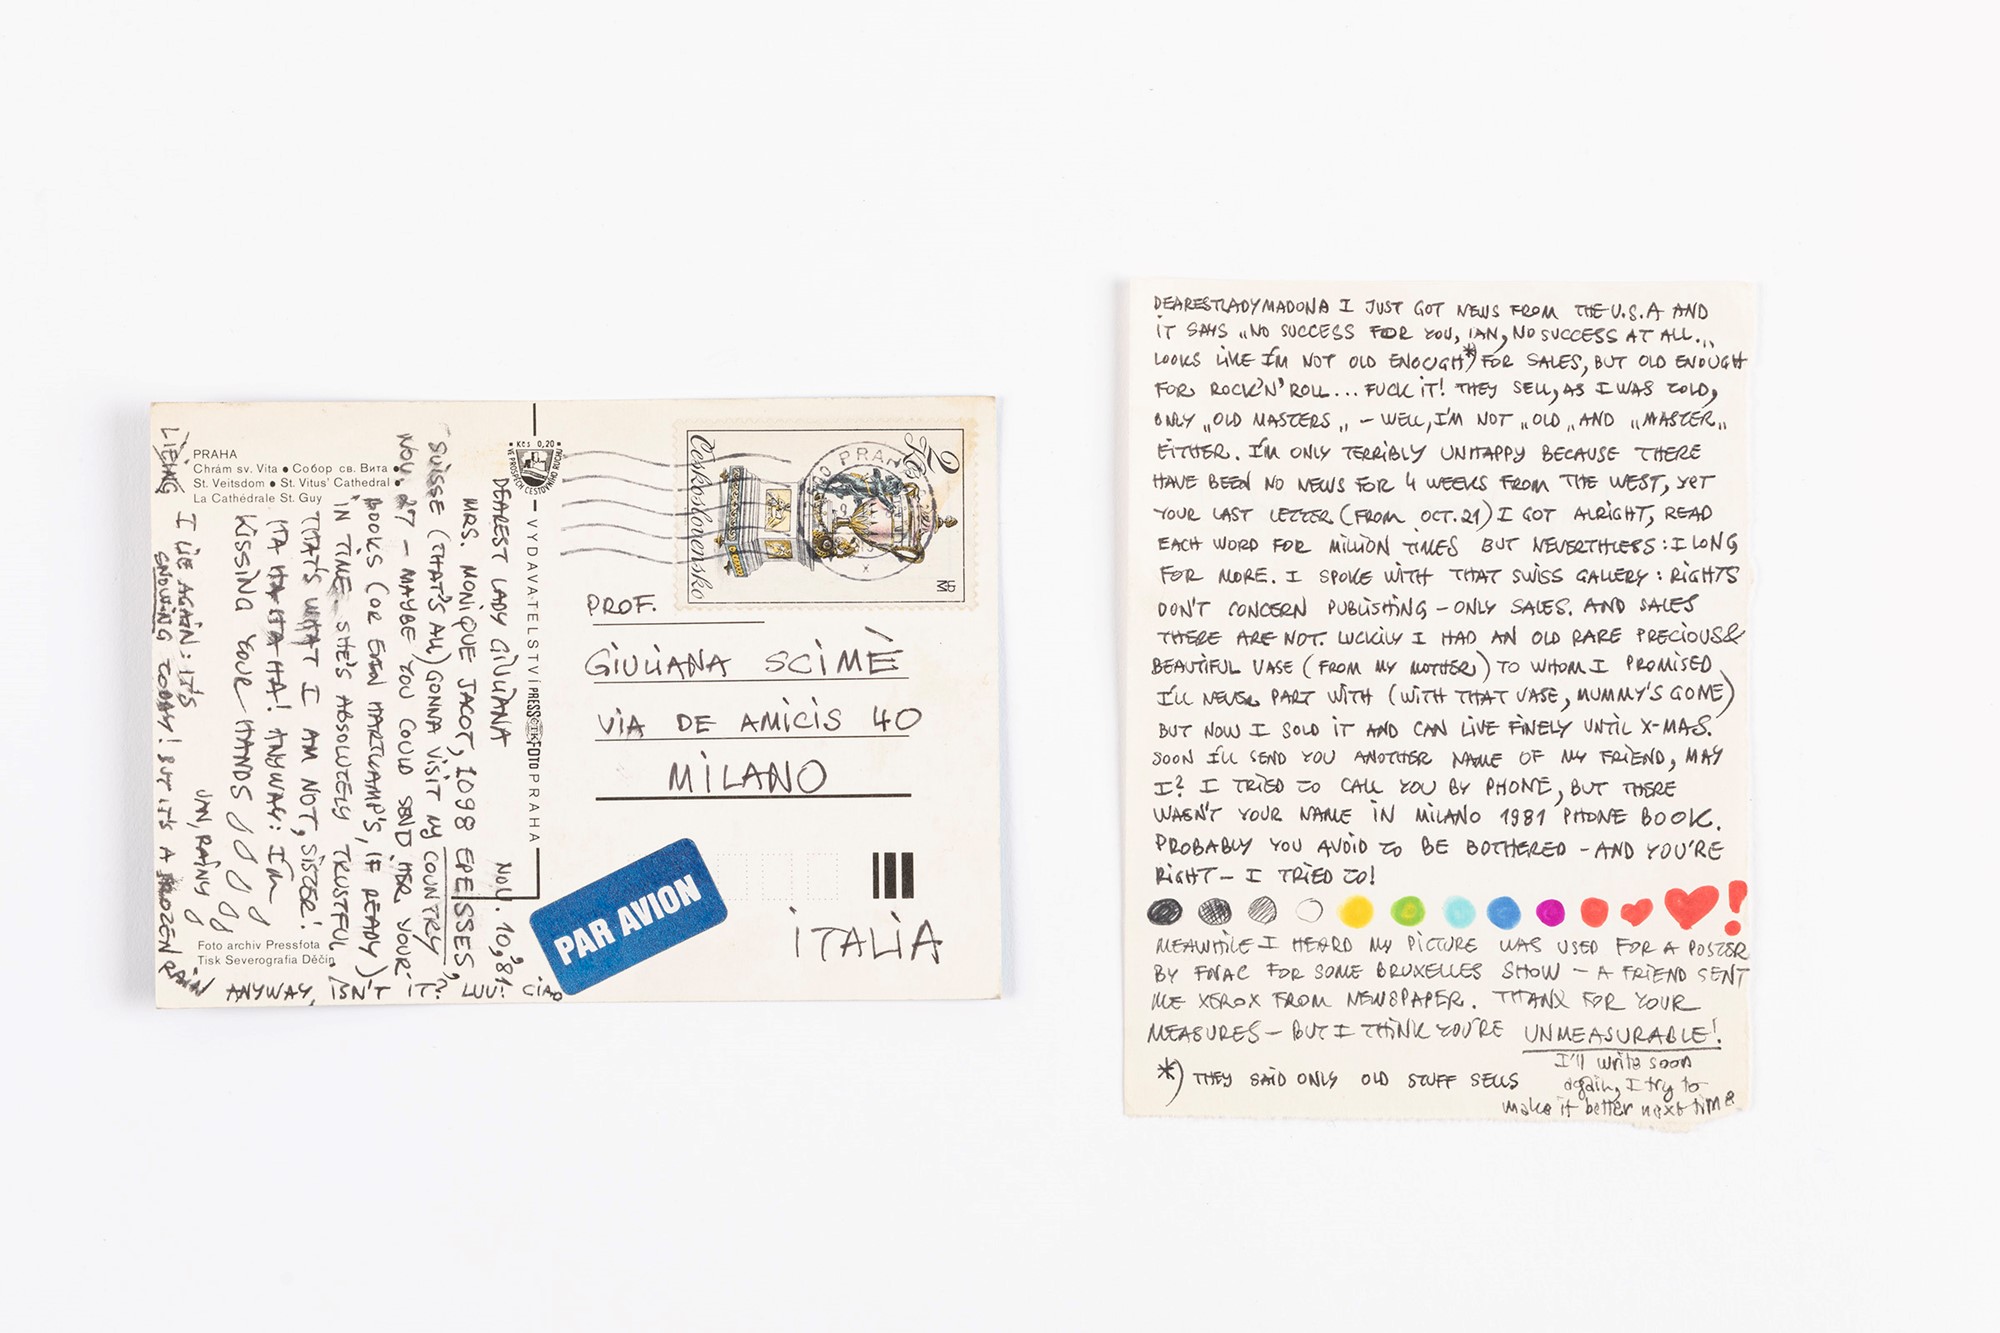 PRAHA
Chrám sv. Víta ● Собор св. Вита ●
St. Veitsdom ● St. Vitus' Cathedral ●
La Cathédrale St. Guy
Foto archiv Pressfota
Tisk Severografia Děčín
Kčs 0,20
VE PROSPĚCH CESTOVNÍHO RUCHU
VYDAVATELSTVÍ PRESSFOTO PRAHA
ČTK
NOV. 10, '81
DEAREST LADY GIULIANA
MRS. MONIQUE JACOT, 1098 EPESSES,
SUISSE (THAT'S ALL) GONNA VISIT MY COUNTRY,
NOV 27 – MAYBE YOU COULD SEND HER YOUR
BOOKS (OR EVEN HARTKAMP'S, IF READY)
IN TIME. SHE'S ABSOLUTELY TRUSTFUL.
THAT'S WHAT I AM NOT, SISTER!
HA HA HA HA! ANYWAY: I'M
KISSING YOUR HANDS
JAN, RAINY
I LIE AGAIN: IT'S
SNOWING TODAY! BUT IT'S A FROZEN RAIN
LIEING
ANYWAY, ISN'T IT? LUV: CIAO
Československo
2 Kčs
PRAHA
PROF.
GIULIANA SCIMÈ
VIA DE AMICIS 40
MILANO
PAR AVION
ITALIA
DEARESTLADYMADONA I JUST GOT NEWS FROM THE U.S.A AND
IT SAYS „NO SUCCESS FOR YOU, IAN, NO SUCCESS AT ALL.„
LOOKS LIKE I'M NOT OLD ENOUGH*) FOR SALES, BUT OLD ENOUGH
FOR ROCK'N' ROLL... FUCK IT! THEY SELL, AS I WAS TOLD,
ONLY „OLD MASTERS„ – WELL, I'M NOT „OLD„ AND „MASTER„
EITHER. I'M ONLY TERRIBLY UNHAPPY BECAUSE THERE
HAVE BEEN NO NEWS FOR 4 WEEKS FROM THE WEST, YET
YOUR LAST LETTER (FROM OCT. 21) I GOT ALRIGHT, READ
EACH WORD FOR MILLION TIMES BUT NEVERTHLESS: I LONG
FOR MORE. I SPOKE WITH THAT SWISS GALLERY: RIGHTS
DON'T CONCERN PUBLISHING – ONLY SALES. AND SALES
THERE ARE NOT. LUCKILY I HAD AN OLD RARE PRECIOUS&
BEAUTIFUL VASE (FROM MY MOTHER) TO WHOM I PROMISED
I'LL NEVER PART WITH (WITH THAT VASE, MUMMY'S GONE)
BUT NOW I SOLD IT AND CAN LIVE FINELY UNTIL X-MAS.
SOON I'LL SEND YOU ANOTHER NAME OF MY FRIEND, MAY
I? I TRIED TO CALL YOU BY PHONE, BUT THERE
WASN'T YOUR NAME IN MILANO 1981 PHONE BOOK.
PROBABLY YOU AVOID TO BE BOTHERED – AND YOU'RE
RIGHT – I TRIED TO!
MEAWHILE I HEARD MY PICTURE WAS USED FOR A POSTER
BY FNAC FOR SOME BRUXELLES SHOW – A FRIEND SENT
ME XEROX FROM NEWSPAPER. THANX FOR YOUR
MEASURES – BUT I THINK YOU'RE UNMEASURABLE!
*) THEY SAID ONLY OLD STUFF SELLS
I'll write soon
again, I try to
make it better next time